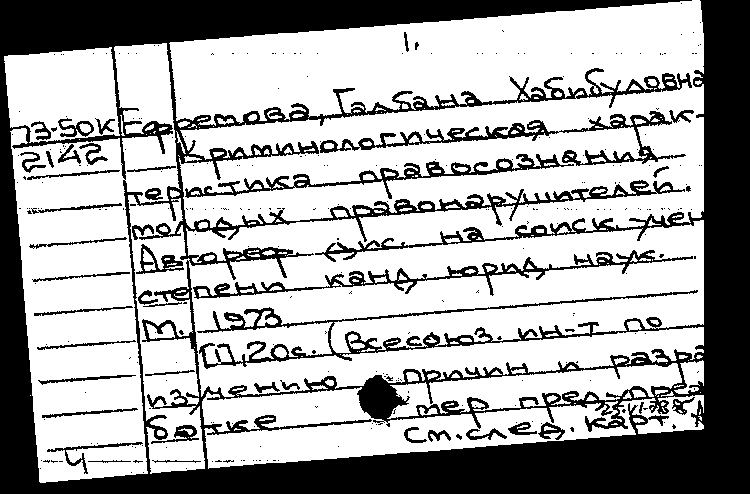 1.
73-50К Ефремова, Галбана Хабибуловна
2142 Криминологическая харак-
теристика правосознания
молодых правонарушителей.
Автореф. дис. на соиск. учен
степени канд. юрид. наук.
М., 1973.
III, 20с. (Всесоюз. ин-т по
изучению причин и разра
ботке мер пред-упреж
См. след. карт.
4